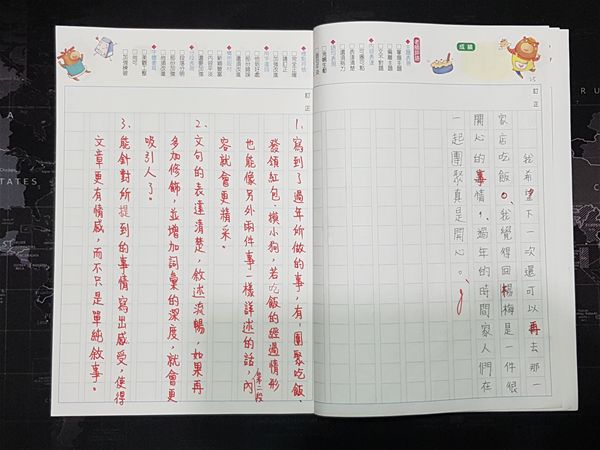 成績
老師評語
訂正
我希望下一次還可以再去那一
家店吃飯。我覺得回楊梅是一件很
開心的事情,過年的時間家人們在
一起團聚真是開心。
訂正
1.寫到了過年所做的事,有:團聚吃飯、
發領紅包、摸小狗,若吃飯的經過情形
也能像另外兩件事一樣詳述的話,內
第二段
容就會更精采。
2.文句的表達清楚,敘述流暢,如果再
多加修飾,並增加詞彙的深度,就會更
吸引人了。
3.能針對所提到的事情寫出感受,使得
文章更有情感,而不只是單純敘事。